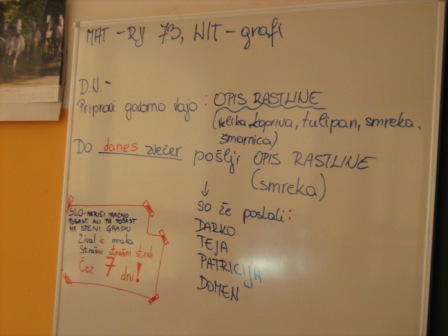 MAT - RJ 73, NIT - grafi
D.N.-
Pripravi govorno vajo: OPIS RASTLINE
(velika kopriva, tulipan, smreka,
šmarnica)
Do danes zvečer pošlji OPIS RASTLINE
(smreka)
↓
SO že poslali:
DARKO
TEJA
PATRICIJA
DOMEN
SLO-NARIŠI MRAČNO
POŠAST ALI PA POŠAST
NA STENI GRADU
Zival je mala
čez 7 dni!